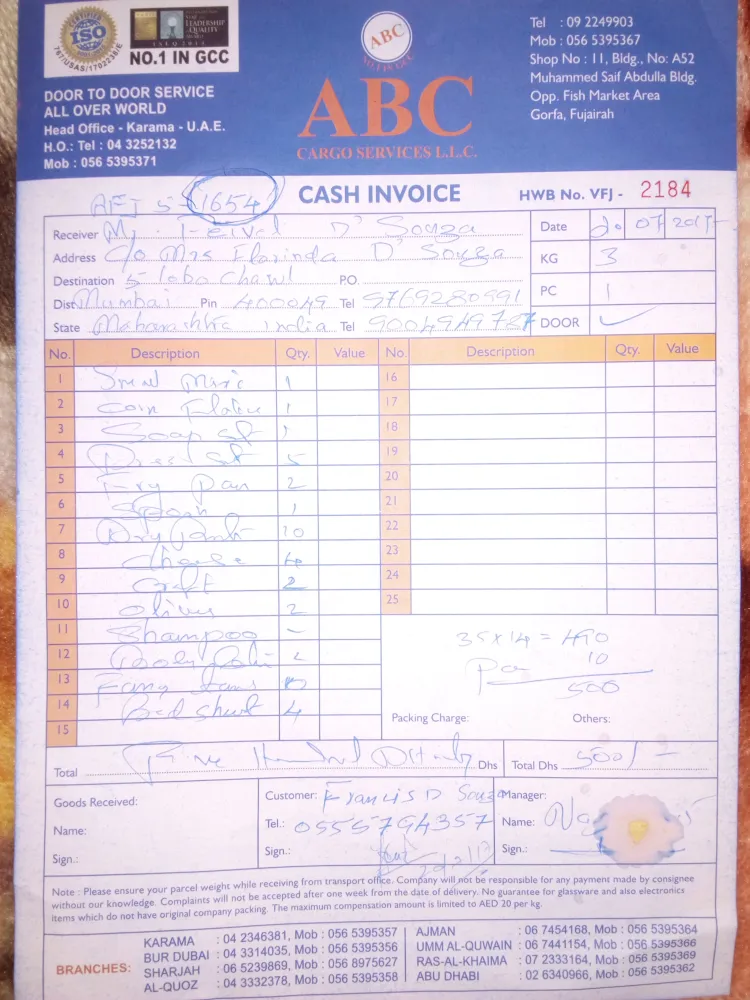 CERTIFIED
ISO
787/USAS/1702230/E
LEADERSHIP
QUALITY
NO.1 IN GCC
DOOR TO DOOR SERVICE
ALL OVER WORLD
Head Office - Karama - U.A.E.
H.O.: Tel : 04 3252132
Mob : 056 5395371
ABC
NO.1 IN GCC
ABC
CARGO SERVICES L.L.C.
Tel : 09 2249903
Mob : 056 5395367
Shop No : 11, Bldg., No: A52
Muhammed Saif Abdulla Bldg.
Opp. Fish Market Area
Gorfa, Fujairah
1654
CASH INVOICE
HWB No. VFJ - 2184
Receiver Mr. D'Souza
Address C/o Mrs Florinda D'Souza
Destination 5 lobo chawl PO.
Dist Mumbai Pin 400049 Tel 9769280991
State Maharashtra india Tel 9004949787
Date 20 07 2017
KG 3
PC 1
DOOR ✓
No. Description Qty. Value No. Description Qty. Value
1 1 16
2 Coin 1 17
3 Soap 1 18
4 5 19
5 Fry pan 2 20
6 Spoon 1 21
7 10 22
8 4 23
9 2 24
10 Olives 2 25
11 Shampoo -
12 Body
13
14 Bed sheet 4
15
35 x 14 = 490
10
500
Packing Charge: Others:
Total Five Hundred Dhs Total Dhs 500/-
Goods Received:
Name:
Sign.:
Customer: Francis D Souza
Tel.: 0555794357
Sign.:
Manager:
Name:
Sign.:
Note : Please ensure your parcel weight while receiving from transport office. Company will not be responsible for any payment made by consignee
without our knowledge. Complaints will not be accepted after one week from the date of delivery. No guarantee for glassware and also electronics
items which do not have original company packing. The maximum compensation amount is limited to AED 20 per kg.
BRANCHES:
KARAMA : 04 2346381, Mob : 056 5395357
BUR DUBAI : 04 3314035, Mob : 056 5395356
SHARJAH : 06 5239869, Mob : 056 8975627
AL-QUOZ : 04 3332378, Mob : 056 5395358
AJMAN : 06 7454168, Mob : 056 5395364
UMM AL-QUWAIN : 06 7441154, Mob : 056 5395366
RAS-AL-KHAIMA : 07 2333164, Mob : 056 5395369
ABU DHABI : 02 6340966, Mob : 056 5395362